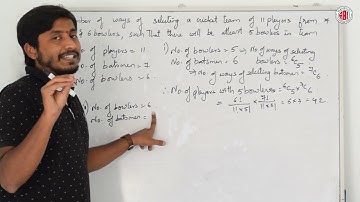 ber of ways of selecting a cricket team of 11 players from
& 6 bowlers, such that there will be atleast 5 bowlers in team
of players = 11
of batsmen = 7
of bowlers = 6
i) No. of bowlers = 5 ⇒ No. of ways of selecting
No. of batsmen = 6 bowlers = ⁶C₅
⇒ No. of ways of selecting batsmen = ⁷C₆
∴ No. of players with 5 bowlers = ⁶C₅ × ⁷C₆
= 6!/1!×5! × 7!/1!×6! = 6×7 = 42
No. of bowlers = 6
No. of batsmen =